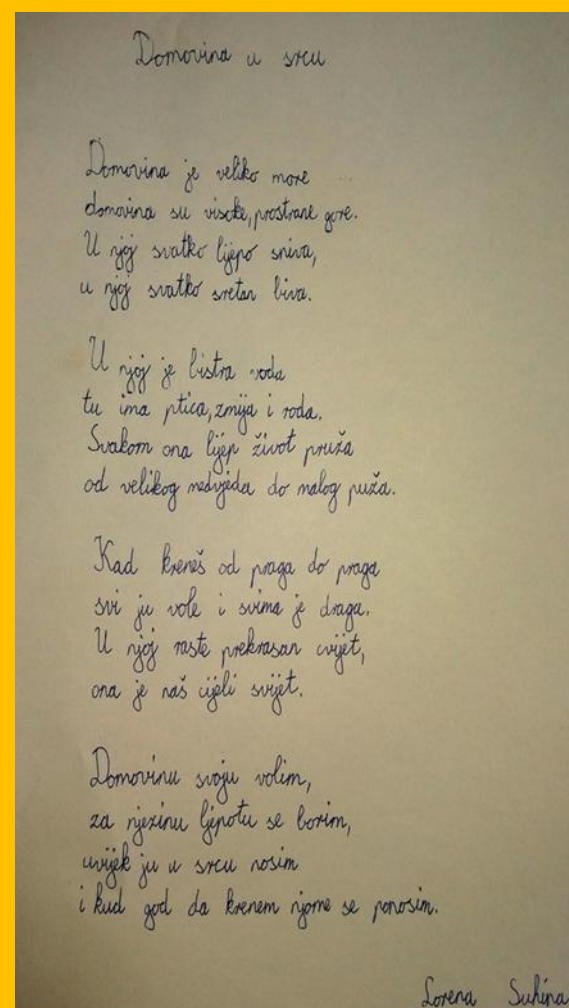 Domovina u srcu
Domovina je veliko more
domovina su visoke, prostrane gore.
U njoj svatko lijepo sniva,
u njoj svatko sretan biva.
U njoj je bistra voda
tu ima ptica, zmija i roda.
Svakom ona lijep život pruža
od velikog medvjeda do malog puža.
Kad kreneš od praga do praga
svi ju vole i svima je draga.
U njoj raste prekrasan cvijet,
ona je naš cijeli svijet.
Domovinu svoju volim,
za njezinu ljepotu se borim,
uvijek ju u srcu nosim
i kud god da krenem njome se ponosim.
Lorena Suhina